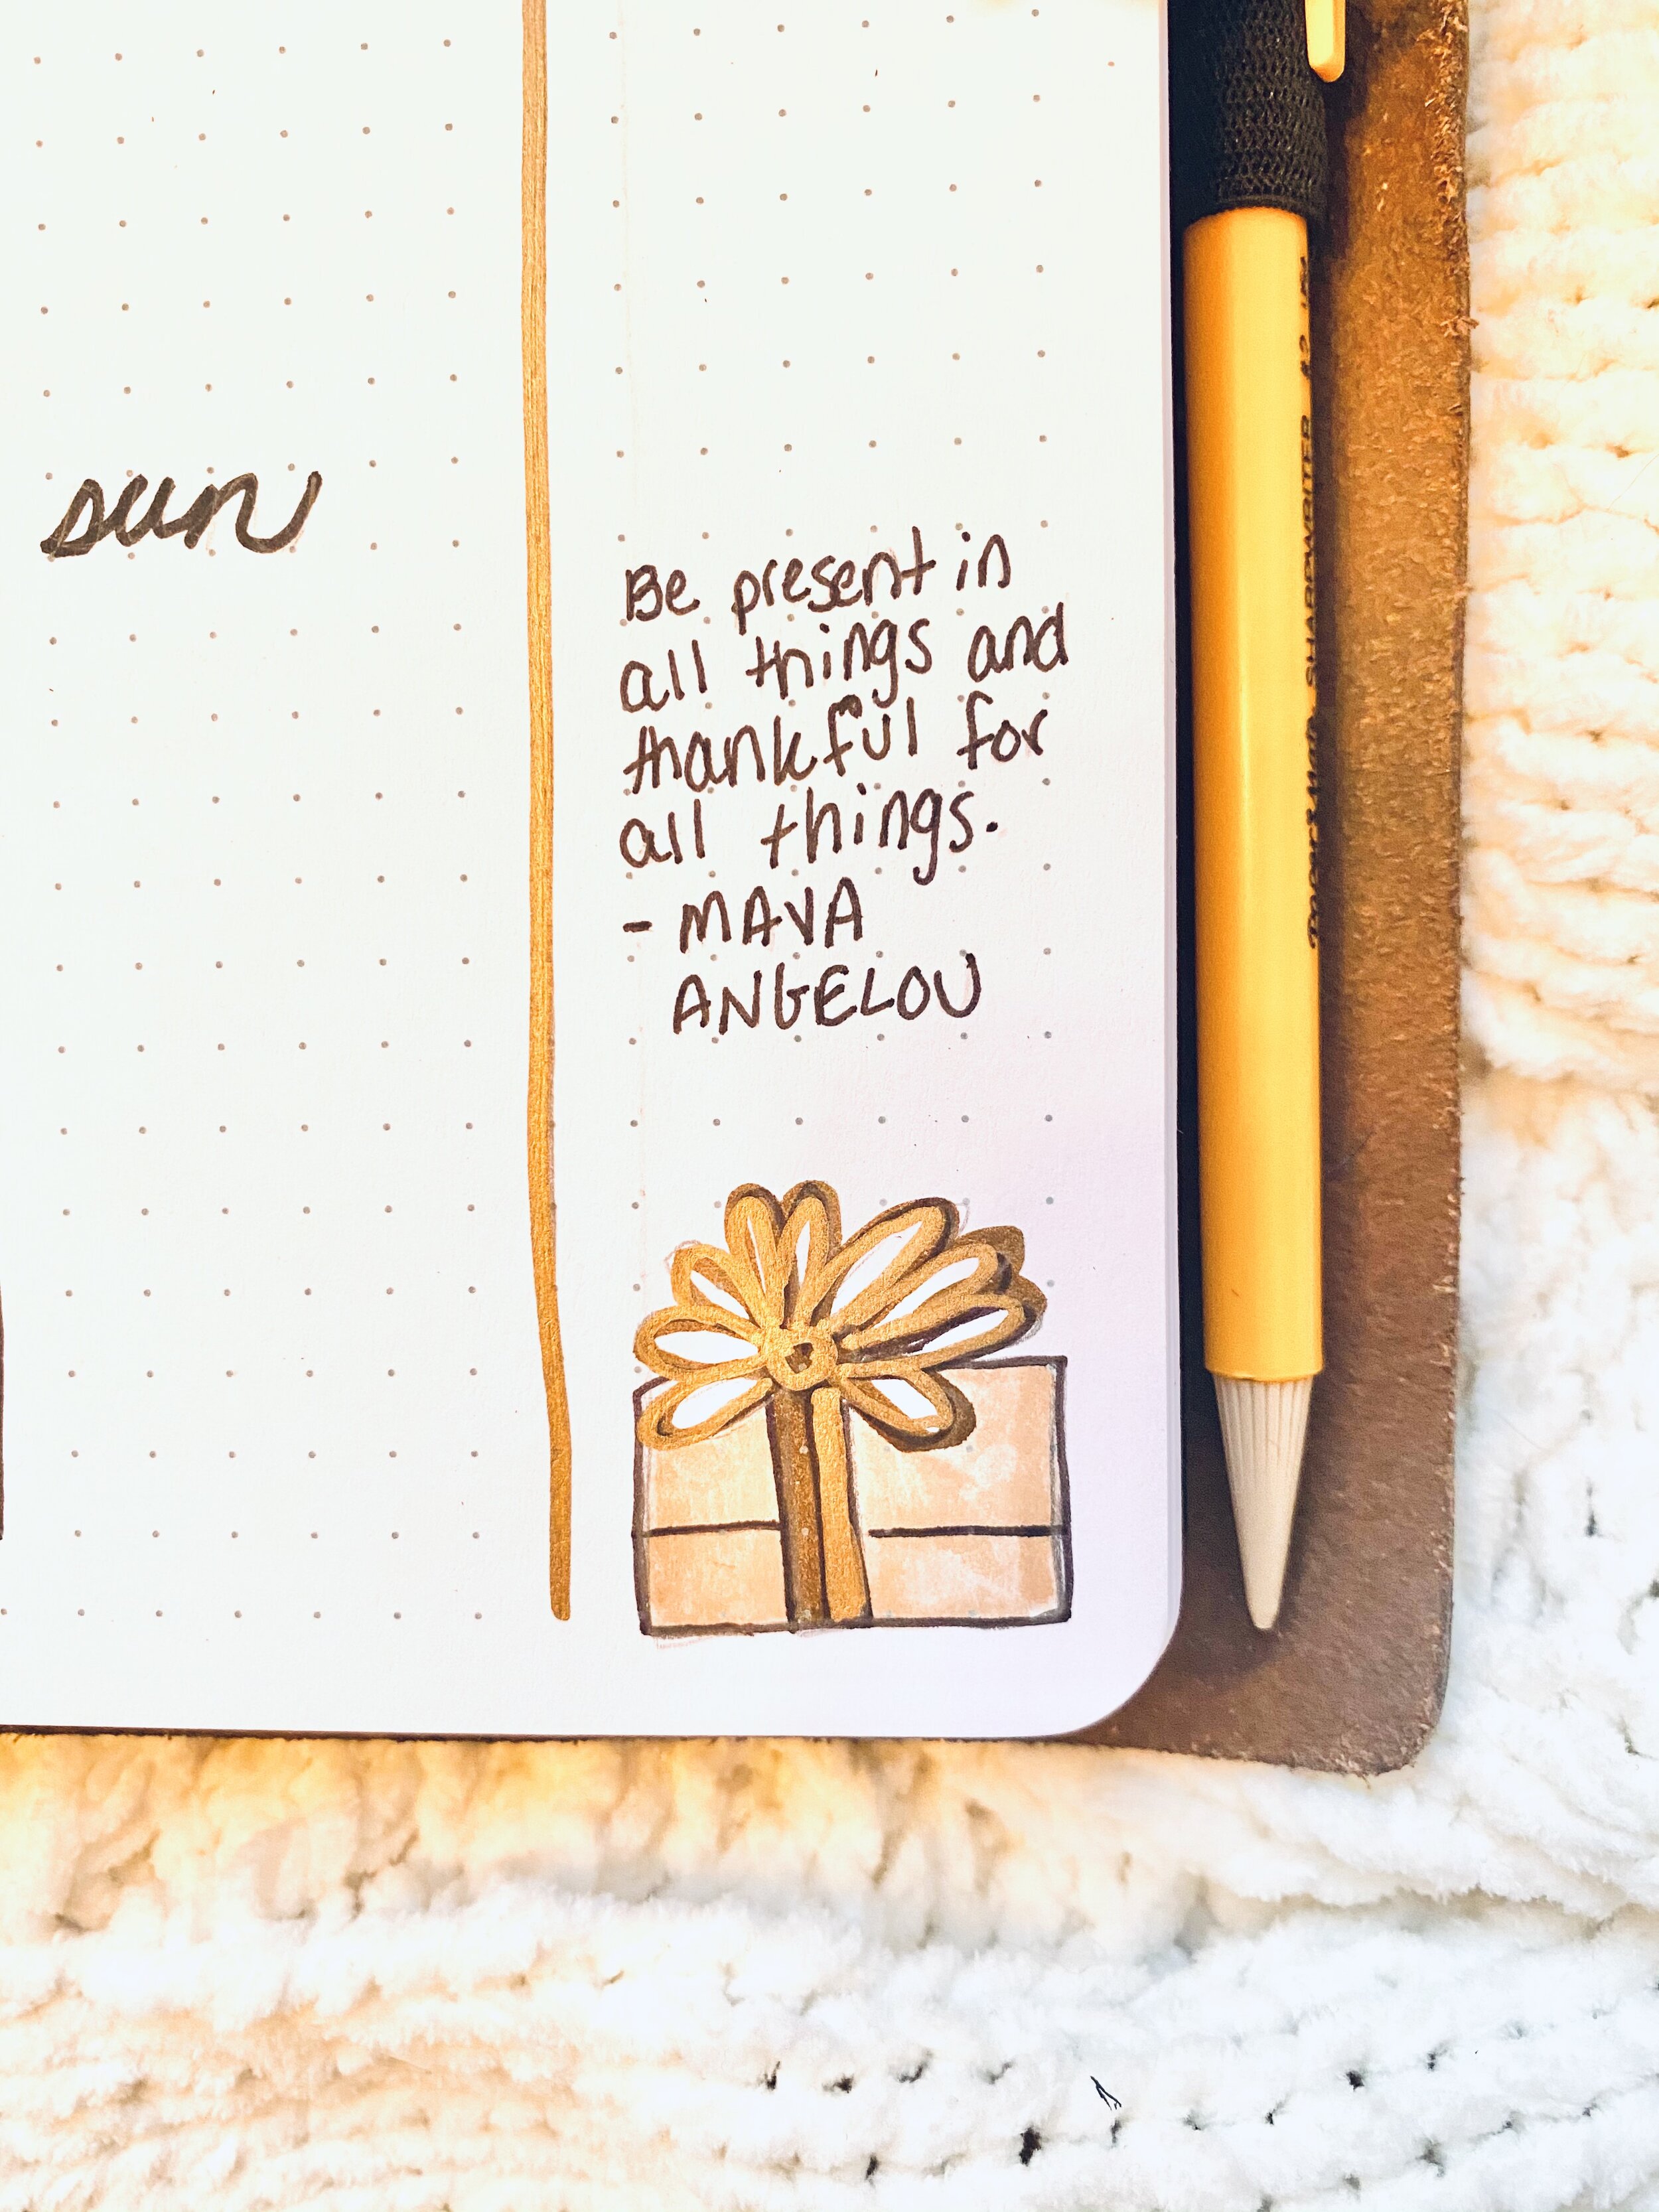 sun
Be present in
all things and
thankful for
all things.
- MAYA
ANGELOU
PaperMate SHARPWRITER #2